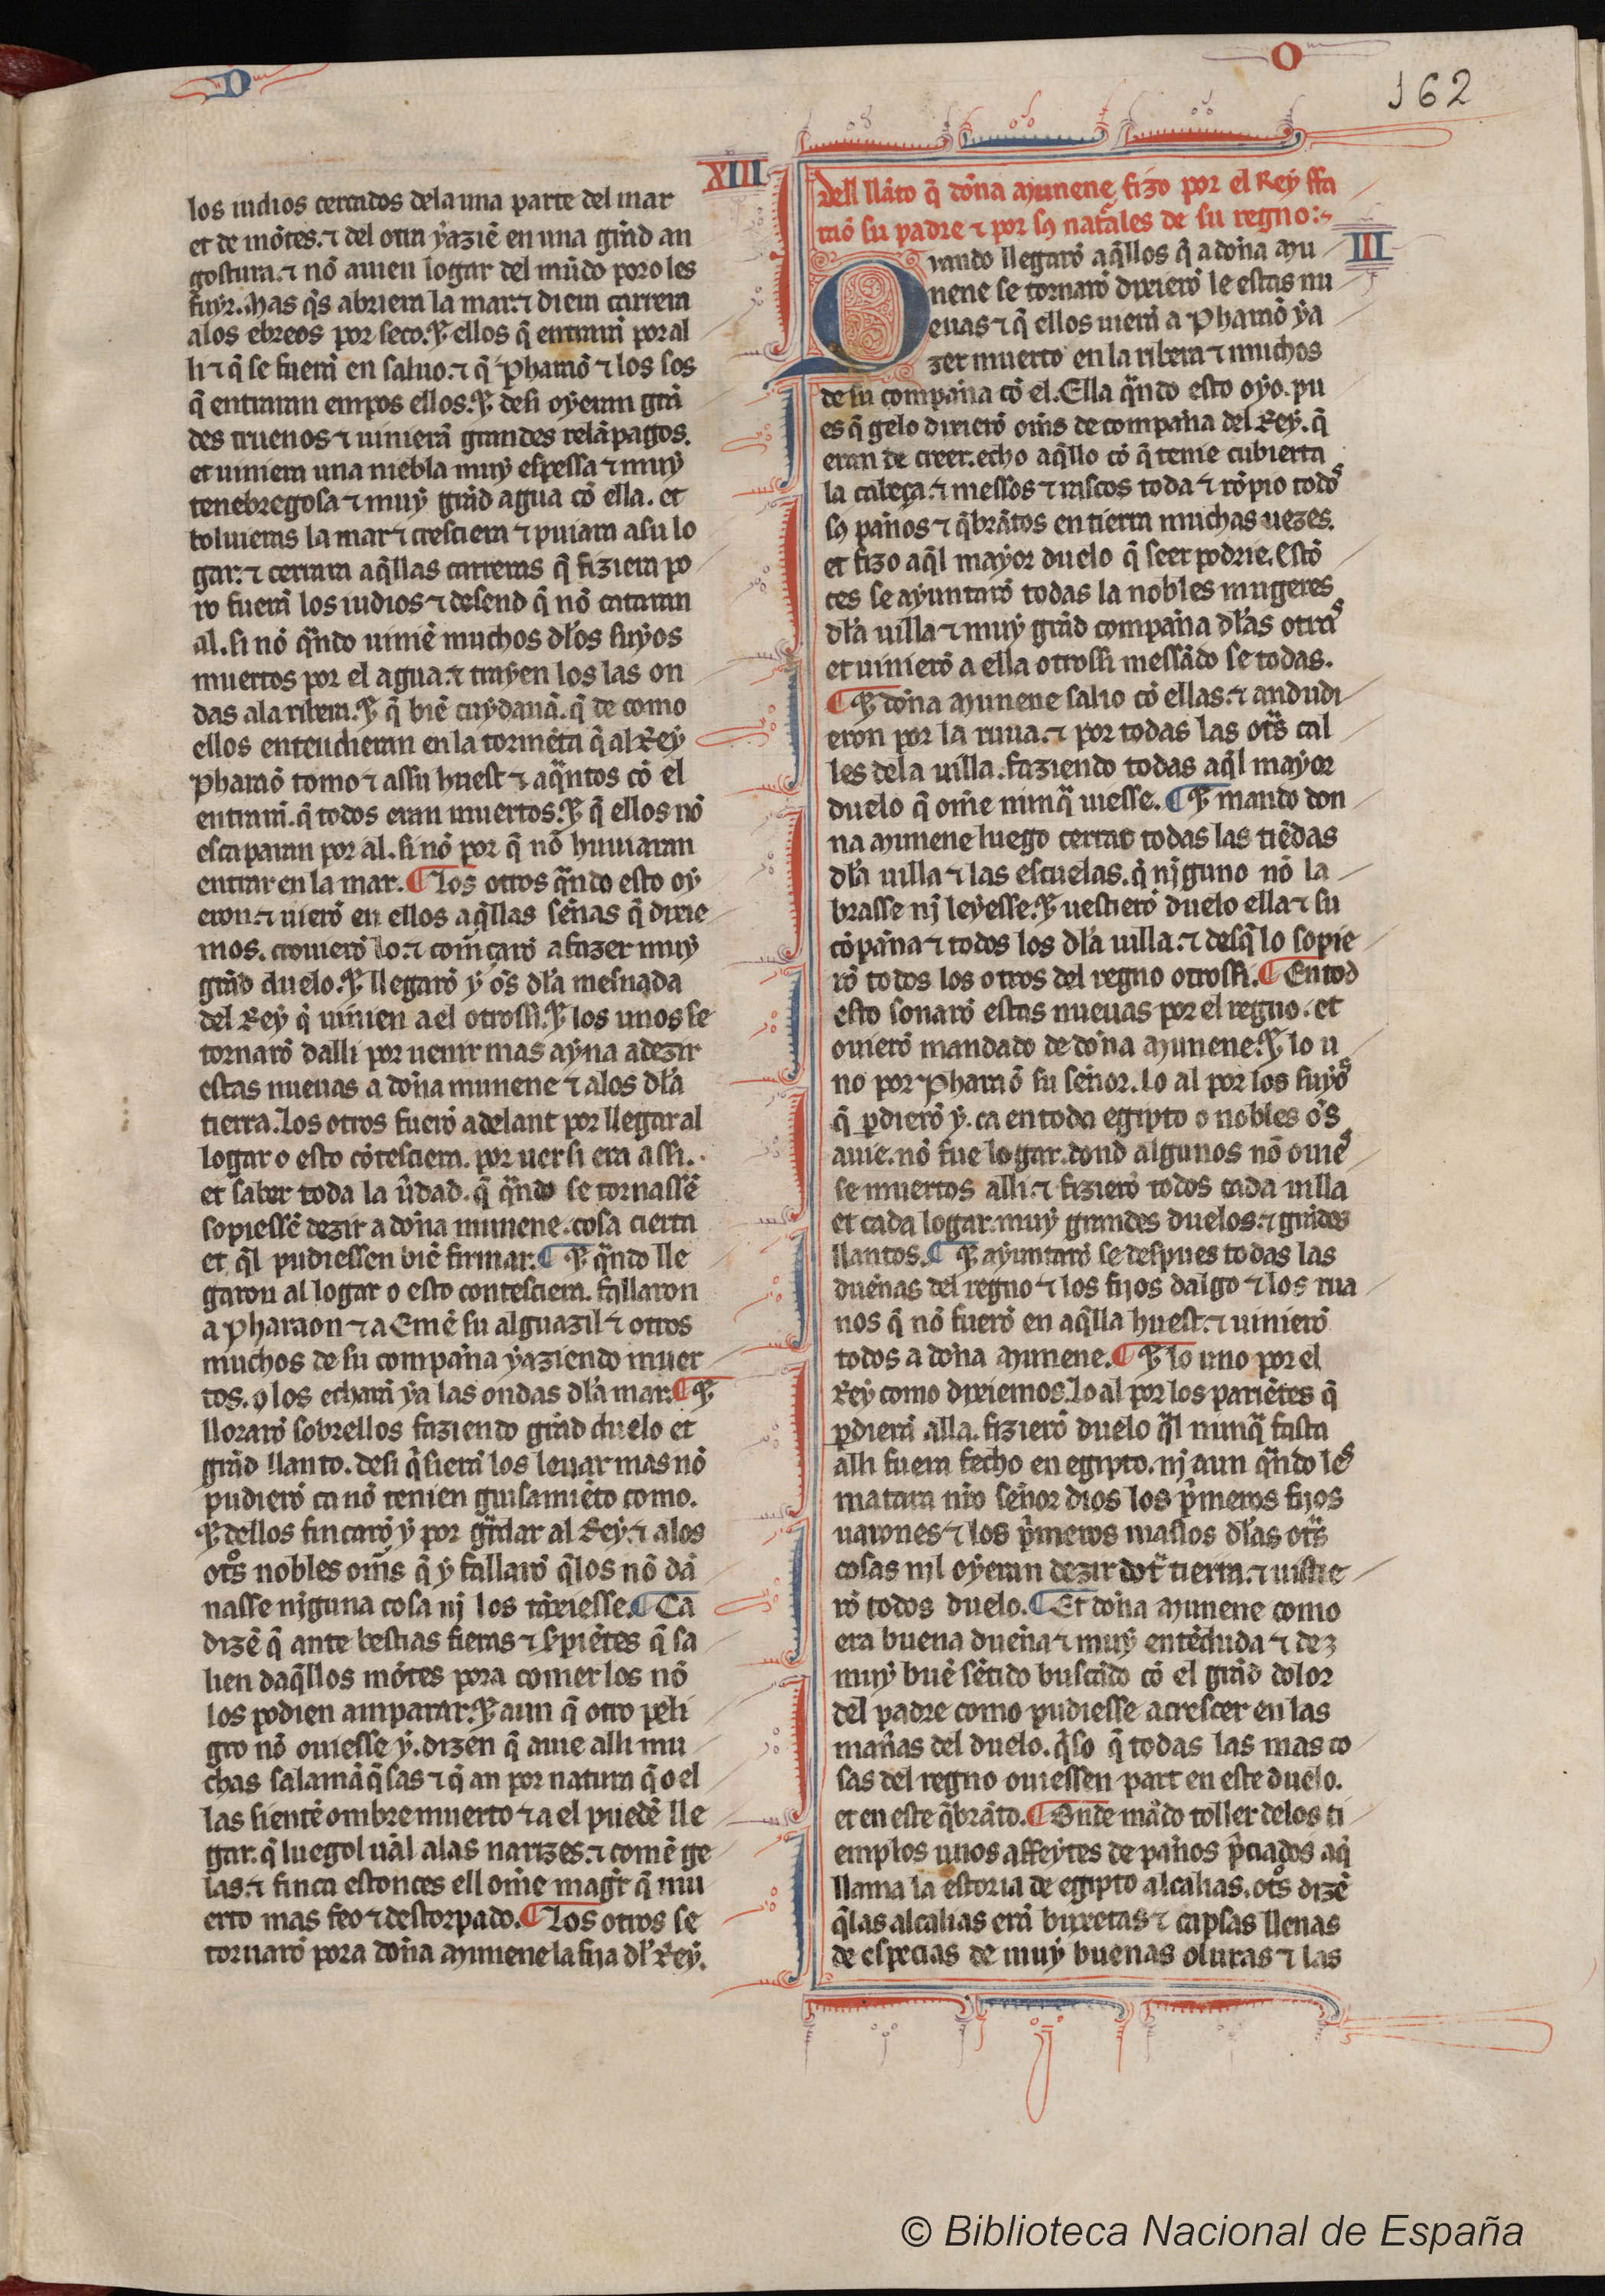 O
O
162
los iudios cercados dela una parte del mar
et de mõtes. ⁊ del otra ẏaziẽ en una grãd an
gostura. ⁊ nõ auien logar del mũdo poro les
fuẏr. Mas q̃s abriera la mar. ⁊ diera carrera
alos ebreos por seco. ⁊ ellos q̃ entrarã por al
li ⁊ q̃ se fuerã en saluo. ⁊ q̃ Pharaõ ⁊ los sos
q̃ entraran empos ellos. ⁊ desi oẏeran grã
des truenos ⁊ uinierã grandes relãpagos.
et uiniera una niebla muẏ espessa ⁊ muẏ
tenebregosa ⁊ muẏ grãd agua cõ ella. et
boluieras la mar ⁊ cresciera ⁊ puiara asu lo
gar. ⁊ cerrara aq̃llas carreras q̃ fiziera po
ro fuerã los iudios ⁊ desend q̃ nõ cataran
al. si nõ q̃ndo uiniẽ muchos dłos suẏos
muertos por el agua. ⁊ traẏen los las on
das ala ribera. ⁊ q̃ biẽ cuẏdauã. q̃ de como
ellos entendieran en la tormẽta q̃ al Reẏ
Pharaõ tomo ⁊ assu huest ⁊ aq̃ntos cõ el
entrarã. q̃ todos eran muertos. ⁊ q̃ ellos nõ
escaparan por al. si nõ por q̃ nõ huuiaran
entrar en la mar. ¶ Los otros q̃ndo esto oẏ
eron. ⁊ uierõ en ellos aq̃llas señas q̃ dixie
mos. crouierõ lo. ⁊ com̃çarõ a fazer muẏ
grãd duelo. ⁊ llegarõ ẏ oс̃s dła mesnada
del Reẏ q̃ uinien a el otrossi. ⁊ los unos se
tornarõ dalli por uenir mas aẏna a dezir
estas nueuas a doña munene ⁊ alos dła
tierra. Los otros fuerõ adelant por llegar al
logar o esto cõtesciera. por uer si era assi.
et saber toda la ũdad. q̃ q̃ndo se tornassẽ
sopiessẽ dezir a doña munene. cosa cierta
et q̃l pudiessen biẽ firmar. ¶ ⁊ q̃ndo lle
garon al logar o esto contesciera. fallaron
a Pharaon ⁊ a Emẽ su alguazil ⁊ otros
muchos de su compaña ẏaziendo muer
tos. o los echarã ẏa las ondas dła mar. ¶ ⁊
llorarõ sobrellos faziendo grãd duelo et
grãd llanto. desi q̃sierã los leuar mas nõ
pudierõ ca nõ tenien guisamiẽto como.
⁊ dellos fincarõ ẏ por grãdar al Reẏ. ⁊ alos
ot̃s nobles om̃s q̃ ẏ fallarõ q̃los nõ dã
nasse nj̃guna cosa nj los tãxiesse. ¶ Ca
dizẽ q̃ ante bestias fieras ⁊ s̃piẽtes q̃ sa
lien daq̃llos mõtes pora comer los nõ
los podien amparar. ⁊ aun q̃ otro peli
gro nõ ouiesse ẏ. dizen q̃ auie alli mu
chas salamãq̃sas ⁊ q̃ an por natura q̃ o el
las sientẽ ombre muerto ⁊ a el puedẽ lle
gar. q̃ luegol uãl alas narizes. ⁊ comẽ ge
las. ⁊ finca estonces ell om̃e magr̃ q̃ mu
erto mas feo ⁊ destorpado. ¶ Los otros se
tornarõ pora doña munene la fija dł Reẏ.
XIII
dell llãto q̃ dõna munene fizo por el Reẏ ffa
raõ su padre ⁊ por ss naturales de su regno:~
III
Quando llegarõ aq̃llos q̃ a doña mu
nene se tornarõ dixierõ le estas nu
euas ⁊ q̃ ellos uierã a Pharaõ ẏa
zer muerto en la ribera ⁊ muchos
de su compaña cõ el. Ella q̃ndo esto oẏo. pu
es q̃ gelo dixierõ om̃s de compaña del Reẏ. q̃
eran de creer. echo aq̃llo cõ q̃ tenie cubierta
la cabeça. ⁊ messos ⁊ rascos toda ⁊ rõpio todos
ss paños ⁊ q̃brãtos en tierra muchas uezes.
et fizo aq̃l mayor duelo q̃ seer podrie. Estõ
ces se aẏuntarõ todas la nobles mugeres
dła uilla ⁊ muẏ grãd compaña dłas otras
et uinierõ a ella otrossi messãdo se todas.
¶ ⁊ doña munene salio cõ ellas. ⁊ andudi
eron por la ruua. ⁊ por todas las ot̃s cal
les dela uilla. faziendo todas aq̃l mayor
duelo q̃ om̃e nunq̃ uiesse. ¶ ⁊ mando don
na munene luego cerrar todas las tiẽdas
dła uilla ⁊ las escuelas. q̃ nj̃guno nõ la
brasse nj leẏesse. ⁊ uestierõ duelo ella ⁊ su
cõpaña ⁊ todos los dła uilla. ⁊ desq̃ lo sopie
rõ todos los otros del regno otrossi. ¶ En tod
esto sonarõ estas nueuas por el regno. et
ouierõ mandado de doña munene. ⁊ lo u
no por Pharaõ su señor. lo al por los suẏos
q̃ ꝑdierõ ẏ. ca en toda egipto o nobles õs
auie. nõ fue logar. dond algunos nõ ouies
se muertos alli. ⁊ fizierõ todos cada uilla
et cada logar. muẏ grandes duelos. ⁊ grãdes
llantos. ¶ ⁊ aẏuntarõ se despues todas las
dueñas del regno ⁊ los fijos dalgo ⁊ los rua
nos q̃ nõ fuerõ en aq̃lla huest. ⁊ uinierõ
todos a doña munene. ¶ ⁊ lo uno por el
Reẏ como dixiemos. lo al por los pariẽtes q̃
ꝑdierã alla. fizierõ duelo q̃l nunq̃ fasta
alli fuera fecho en egipto. nj aun q̃ndo les
matara nr̃o señor dios los p̃meros fijos
uarones ⁊ los p̃meros maslos dłas ot̃s
cosas njl oẏeran dezir dot̃ tierra. ⁊ uistie
rõ todos duelo. ¶ Et doña munene como
era buena dueña ⁊ muẏ entẽduda ⁊ de
muẏ buẽ sẽtido buscãdo cõ el grãd dolor
del padre como pudiesse acrescer en las
mañas del duelo. q̃so q̃ todas las mas co
sas del regno ouiessen part en este duelo.
et en este q̃brãto. ¶ Onde mãdo toller delos ti
emplos unos affeẏtes de paños p̃ciados aq̃
llama la estoria de egipto alcalias. ot̃s dizẽ
q̃las alcalias erã buxetas ⁊ capsas llenas
de especias de muẏ buenas oluras ⁊ las
© Biblioteca Nacional de España